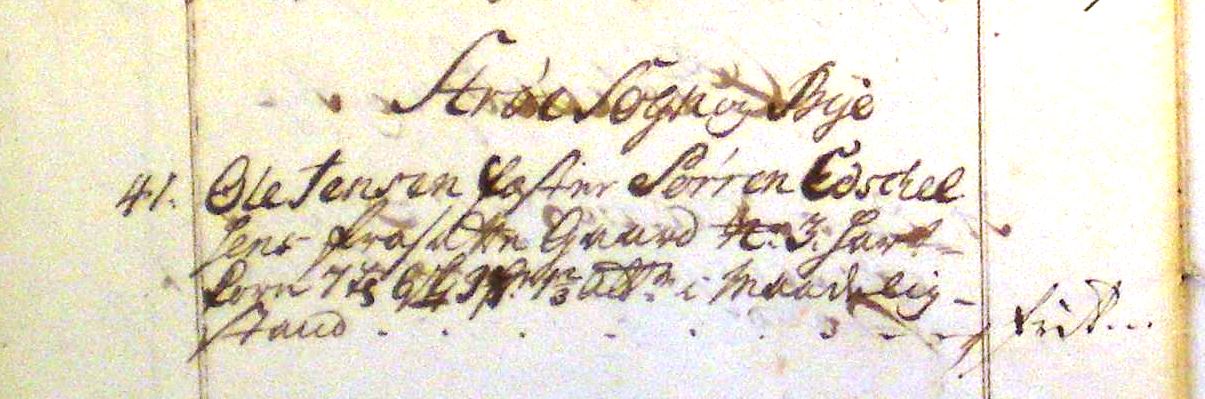 Strøe Sogn og Bye
41. Ole Jensen fæster Sørren Edschel
sens fradøde Gaard No. 3. Hart-
korn 7 td 6 3 1 1/3 alb. i Maadelig
stand - - - - 3 - - frit...